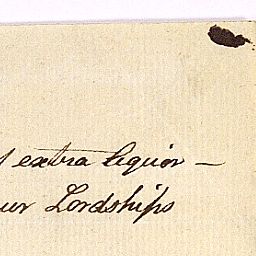 extra liquor —
ur Lordships